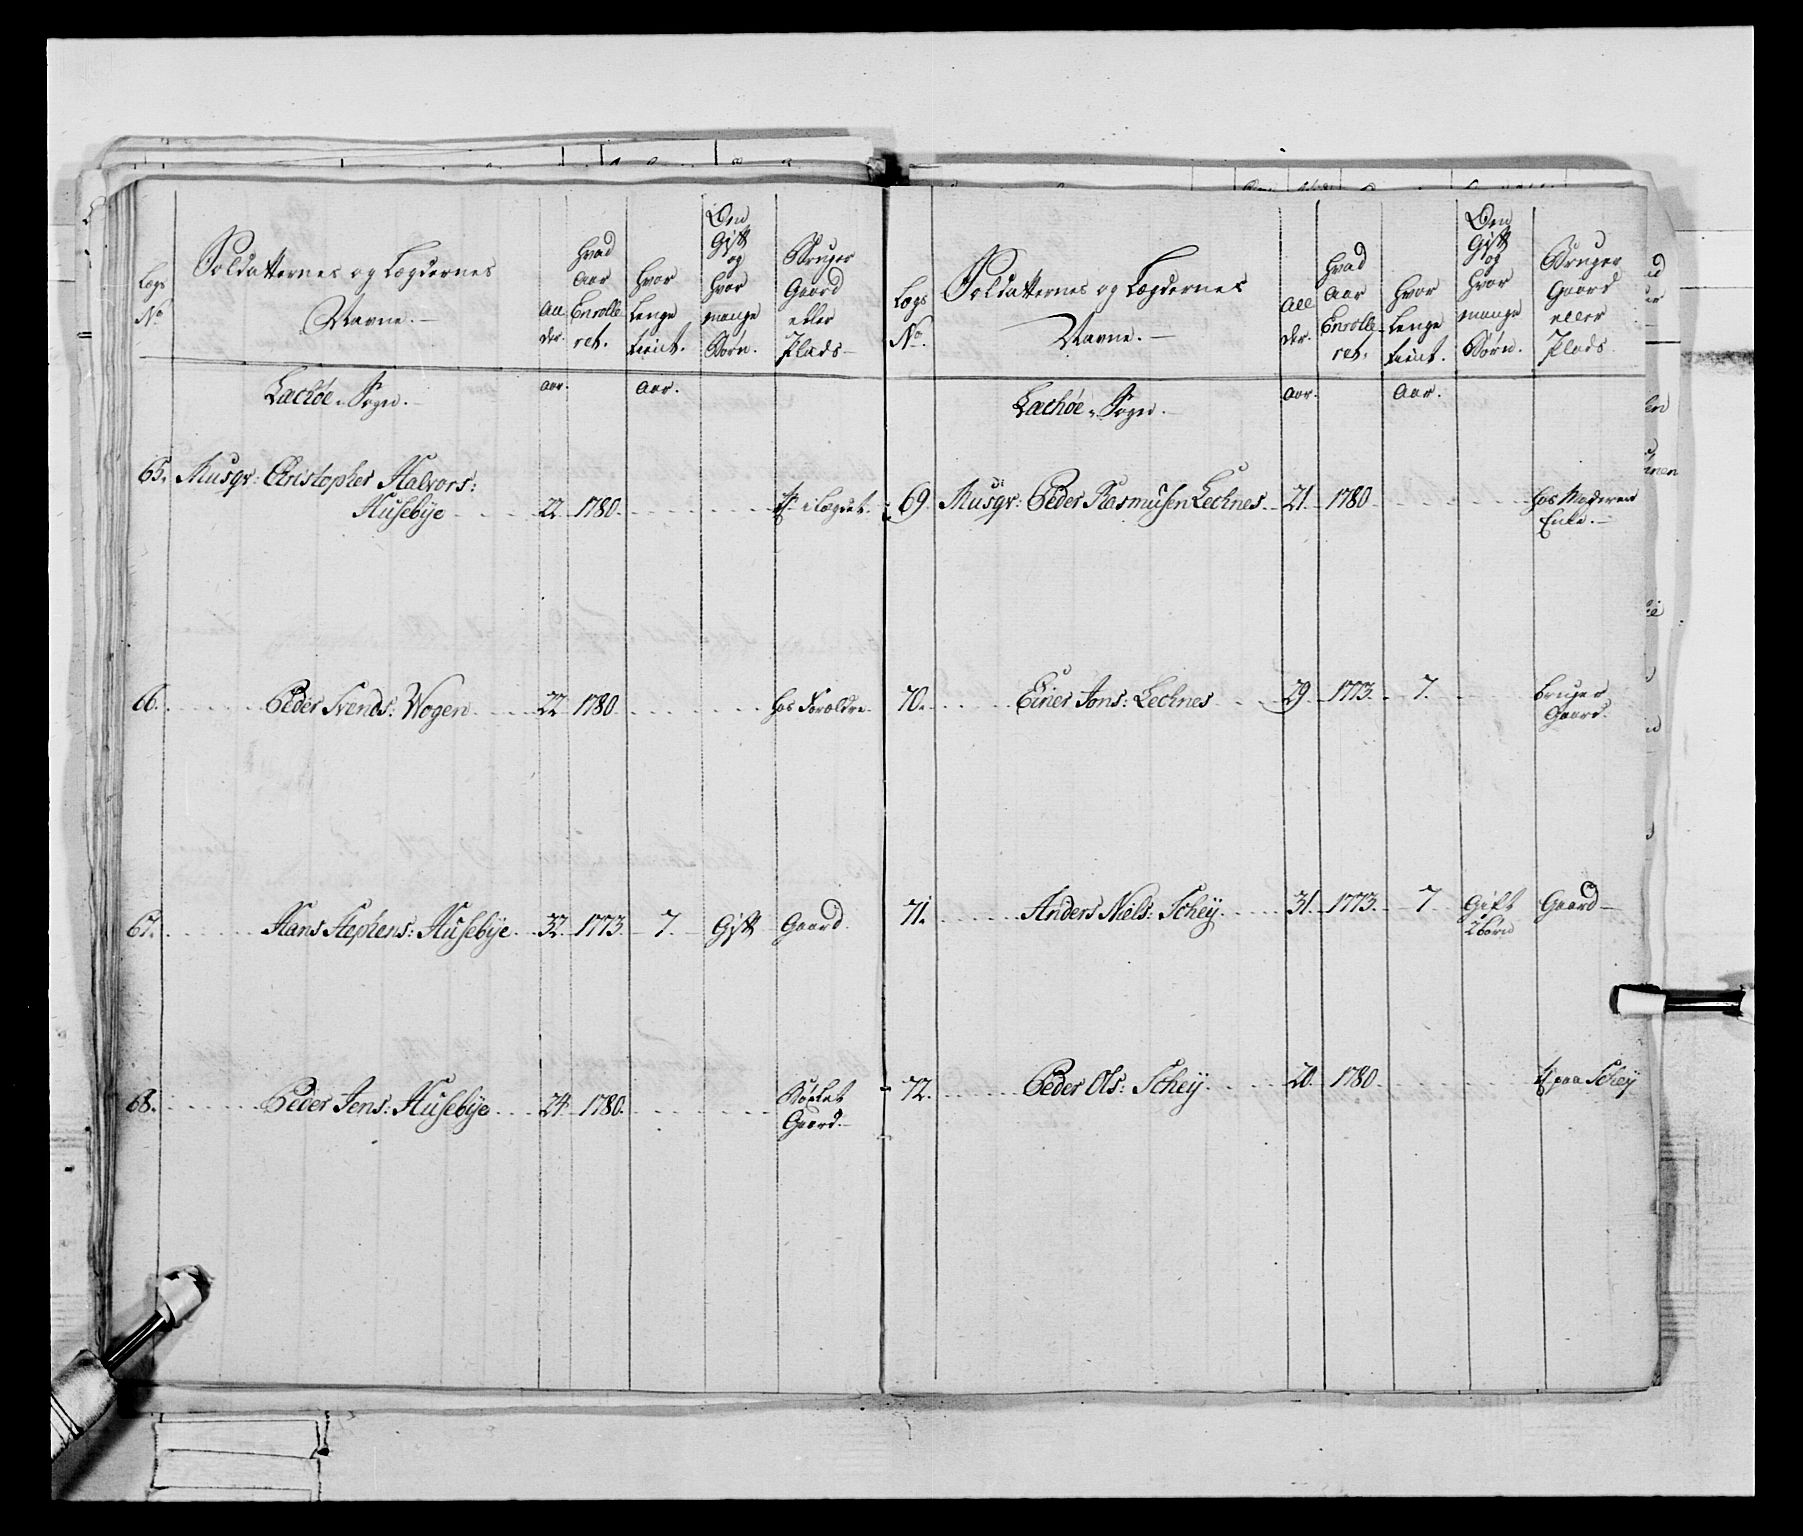 Lægs
No
Soldatternes og Lægdernes
Navne.
All
der.
Hvad
Aar
Enrolle
ret.
Hvor
lenge
tient.
Om
Gift
og
hvor
mange
Børn.
Bruger
Gaard
eller
Plads
Lachöe Sogn.
aar.
Aar.
65. Musqr: Christopher Halvors:
Husebÿe 22 1780. i Lægdet.
66. Peder Svends: Wogen 22 1780. hos Forældre
67. Hans Stephens: Husebÿe 32 1773. 7. Gift Gaard.
68. Peder Jens: Husebÿe 24 1780.
Gaard.
Lægs
No.
Soldatternes og Lægdernes
Navne.
All
der.
Hvad
Aar
Enrolle
ret.
Hvor
lenge
tient.
Om
Gift
og
hvor
mange
Børn.
Bruger
Gaard
eller
Plads
Lachöe Sogn.
aar.
Aar.
69. Musqr: Peder Rasmusen Lechnes 21. 1780. hos Moderen
Enke.
70. Einer Jons: Lechnes 29. 1773. 7. bruger
Gaard.
71. Anders Niels: Schey. 31. 1773. 7 Gift Gaard
2 børn
72. Peder Ols: Scheÿ. 20. 1780. paa Scheÿ